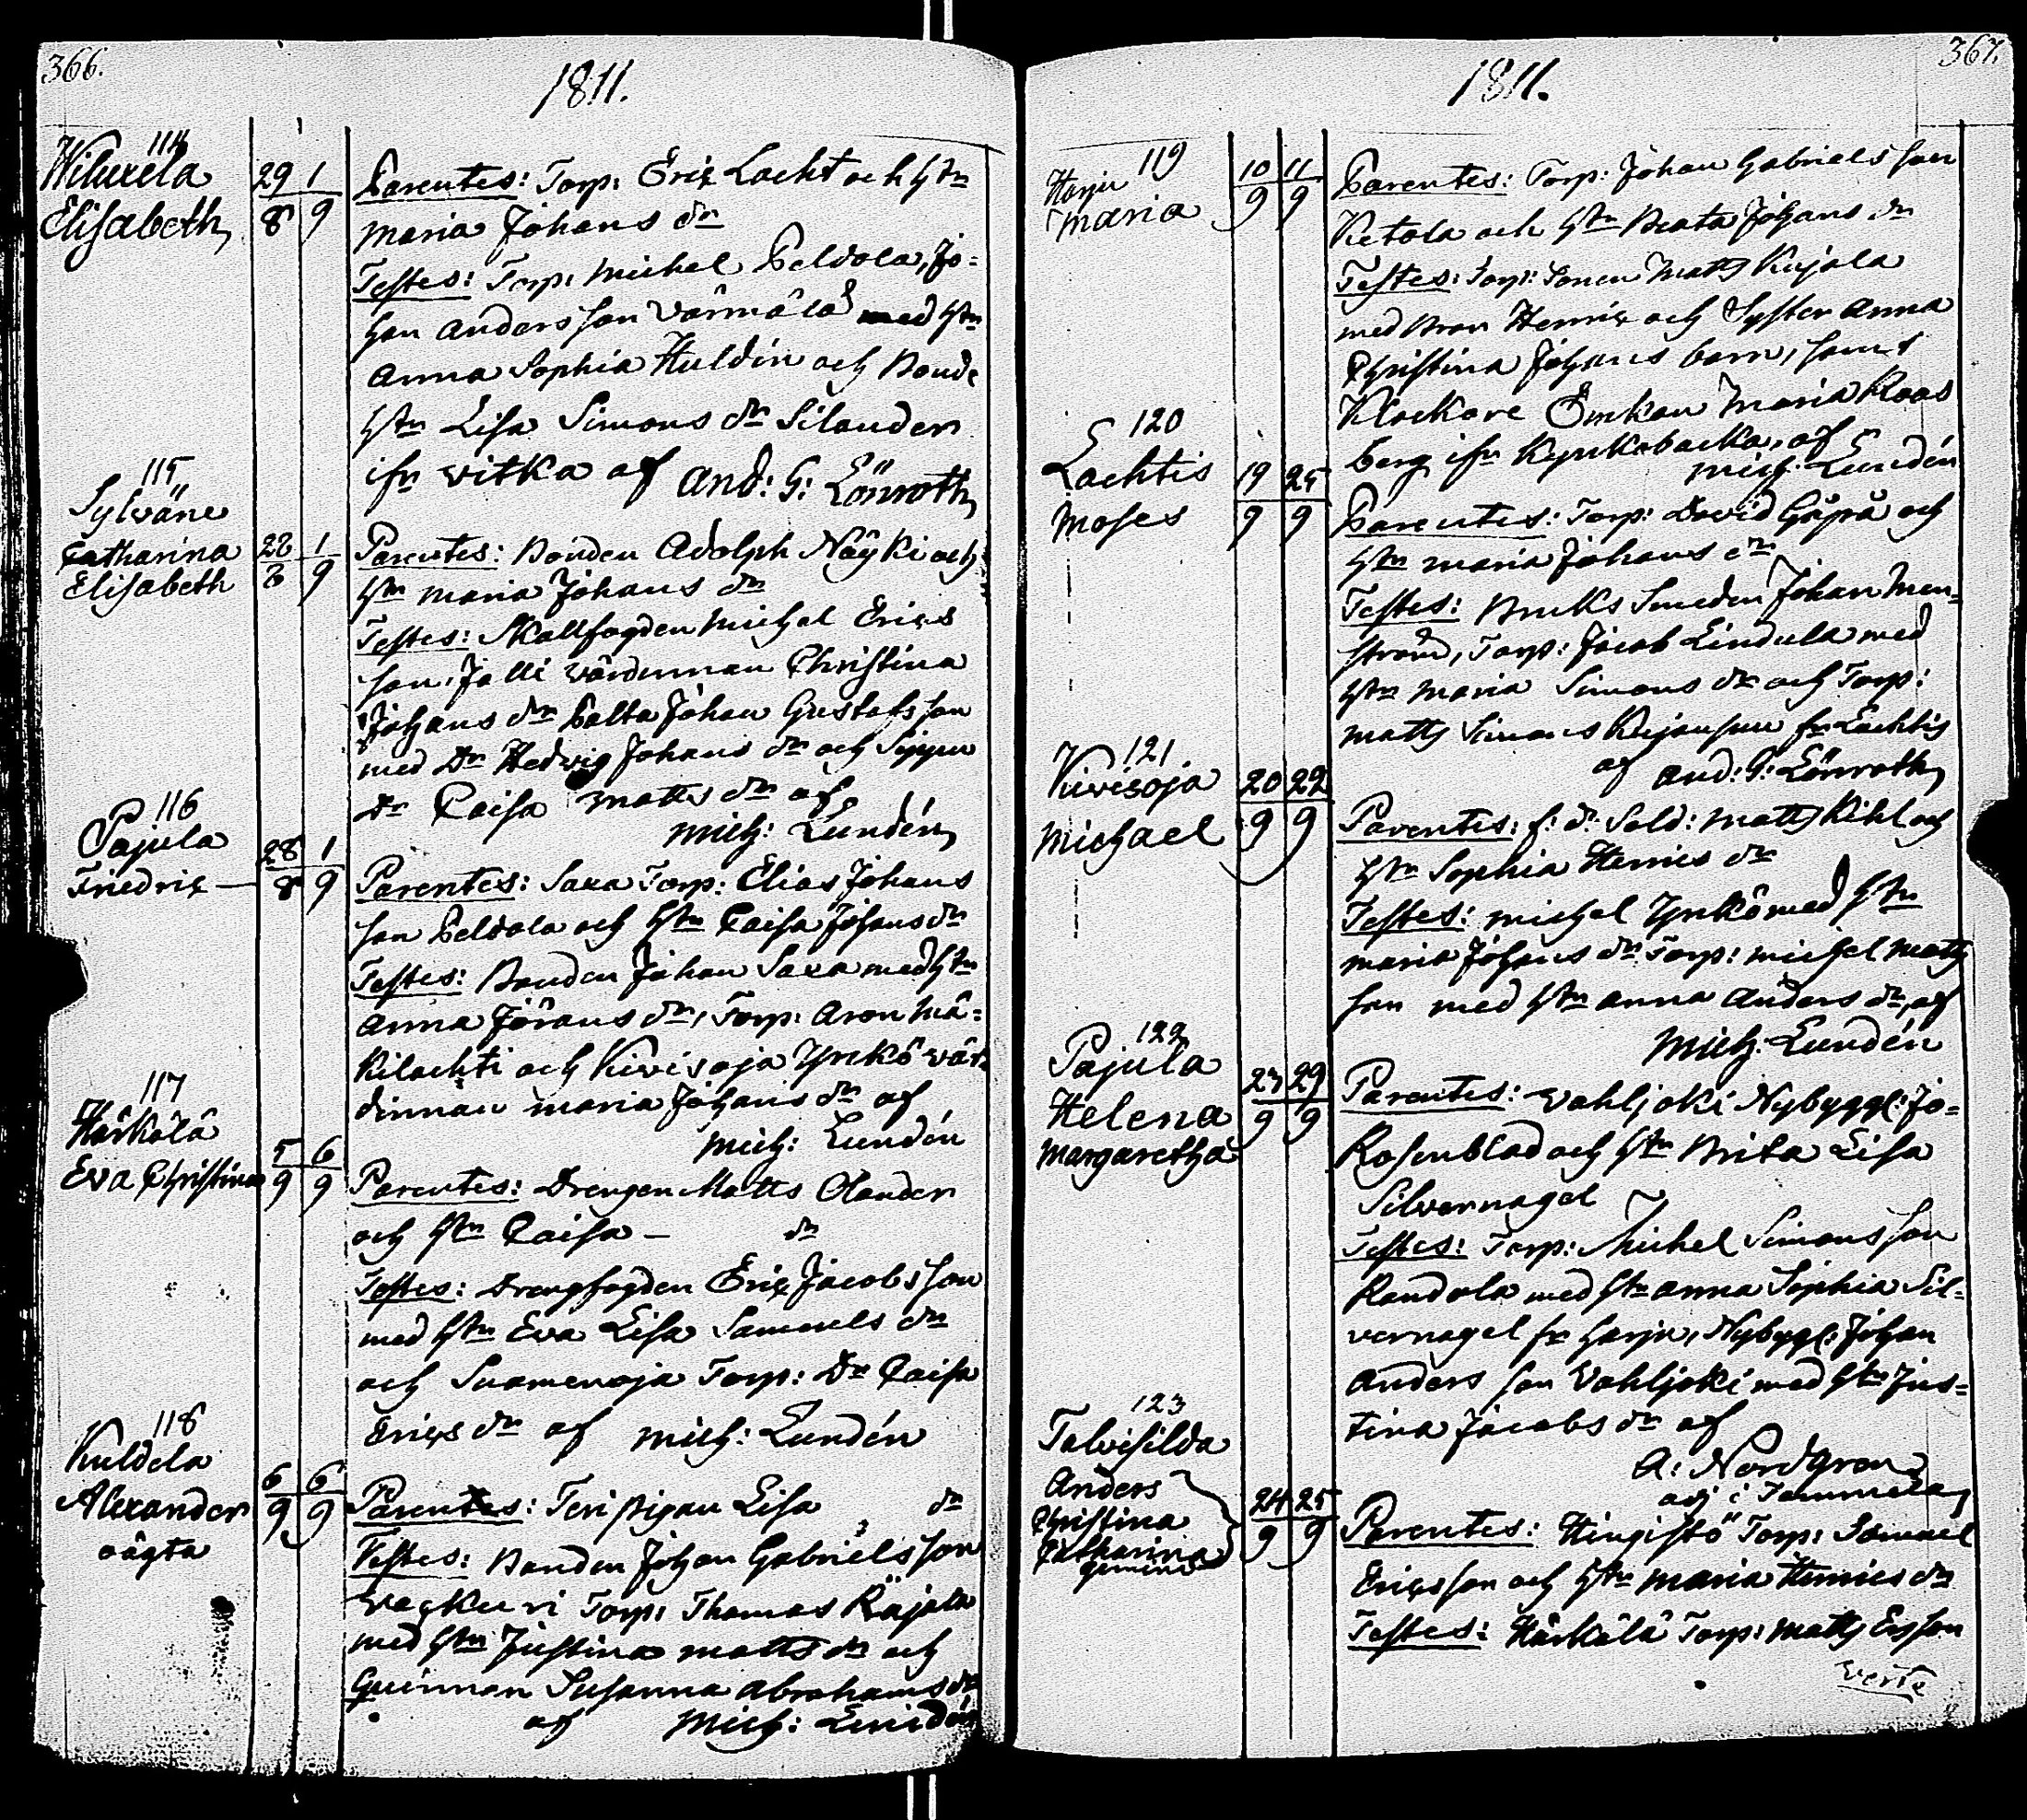 366.
1811.
114
Elisabeth
29 1
8 9
Parentes: Torp: Eric Lacht och hstn
Maria Johans dr
Testes: Torp: Michel Peldola, Jo=
han Andersson Värmälä med hstn
Anna Sophia Huldin och Bonde
hstn Lisa Simons dr Silander
ifn Witka af And: G: Lönroth
115
Sylväne
Catharina
Elisabeth
28 1
8 9
Parentes: Bonden Adolph Näyki och
hstn Maria Johans dr
Testes: Skallfogden Michel Erics
son, Jalli Värdinnan Christina
Johans dr Johan Gustafsson
med Dr Hedvig Johans dr och
Dr Caisa Matts dr af
Mich: Lundén
116
Pajula
Fredric —
28 1
8 9
Parentes: Saxa Torp: Elias Johans
son Peldola och hstn Caisa Johans dr
Testes: Bonden Johan Saxa med hstn
Anna Jörans dr, Torp: Aron Mä=
kilachti och Kivisoja Yrckö vär
dinnan Maria Johans dr af
Mich: Lundén
117
Härkälä
Eva Christina
5 6
9 9
Parentes: Drengen Matts Olander
och hstn Caisa — dr
Testes: Drengfogden Eric Jacobsson
med hstn Eva Lisa Samuels dr
och Suomenoja Torp: Dr Caisa
Erics dr af Mich: Lundén
118
Kuldela
Alexander
oägta
6 6
9 9
Parentes: Pigan Lisa dr
Testes: Bonden Johan Gabrielsson
Torp: Thomas Räjälä
med hstn Justina Matts dr och
Qvinnan Susanna Abrahams dr
af Mich: Lundén
367.
1811.
119
Harju
Maria
10 11
9 9
Parentes: Torp: Johan Gabrielsson
Ketola och hstn Beata Johans dr
Testes: Torp: Sonen Matts Kujala
med Bror Henric och Syster Anna
Christina Johans barn, samt
Klockare Enkan Maria Roos
berg ifn Kyrckobacka, af
Mich: Lundén
120
Lachtis
Moses
19 25
9 9
Parentes: Torp: David och
hstn Maria Johans dr
Testes: Bruks Smeden Johan Men=
ström, Torp: Jacob Lindula med
hstn Maria Simons dr och Torp:
Matts Simons fr Lachtis
af And: G: Lönroth
121
Kivisoja
Michael
20 22
9 9
Parentes: f: d: Sold: Matts Kihl och
hstn Sophia Henrics dr
Testes: Michel Yrckö med hstn
Maria Johans dr Torp: Michel Matts
son med hstn Anna Anders dr, af
Mich: Lundén
122
Pajula
Helena
Margaretha
23 29
9 9
Parentes: Vahljoki Nybyggl: Jo=
Rosenblad och hstn Brita Lisa
Silvernagel
Testes: Torp: Michel Simonsson
Randola med hstn Anna Sophia Sil=
vernagel fr Harju, Nybyggl: Johan
Anders son Vahljoki med hstn Jus=
tina Jacobs dr af
A: Nordgren
adj i Tammela
123
Talvisilda
Anders
Christina
Catharina
gemini
24 25
9 9
Parentes: Hingistö Torp: Samuel
Ericsson och hstn Maria Henrics dr
Testes: Härkälä Torp: Matts Ersson
verte